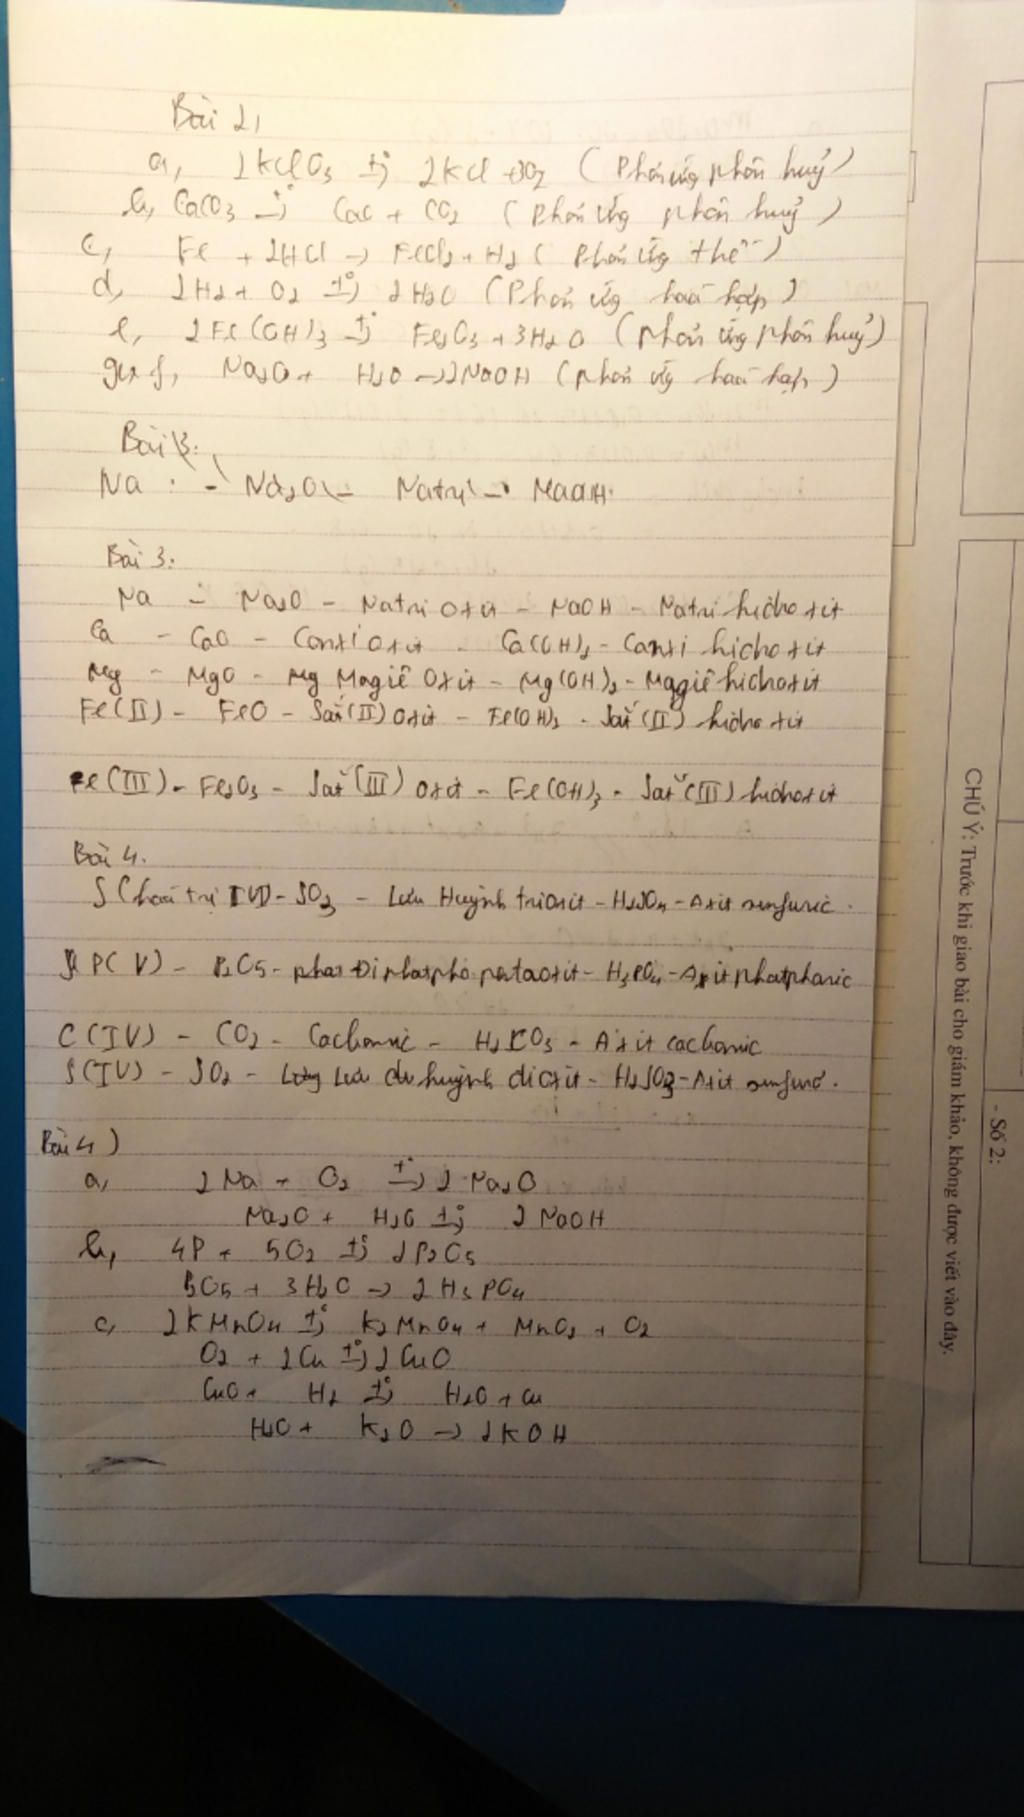 Bài 2,
a, 2KClO3 t°→ 2KCl + 3O2 ( Phản ứng phân huỷ )
b, CaCO3 t°→ CaO + CO2 ( Phản ứng phân huỷ )
c, Fe + 2HCl → FeCl2 + H2 ( Phản ứng thế )
d, 2H2 + O2 t°→ 2H2O ( Phản ứng hoá hợp )
e, 2Fe(OH)3 t°→ Fe2O3 + 3H2O ( phản ứng phân huỷ )
f, Na2O + H2O → 2NaOH ( phản ứng hoá hợp )
Bài 3:
Na - Na2O - Natri - NaOH
Bài 3:
Na - Na2O - Natri Oxit - NaOH - Natri hidroxit
Ca - CaO - Canxi Oxit - Ca(OH)2 - Canxi hidroxit
Mg - MgO - Mg Magiê Oxit - Mg(OH)2 - Magiê hidroxit
Fe(II) - FeO - Sắt (II) Oxit - Fe(OH)2 - Sắt (II) hidroxit
Fe(III) - Fe2O3 - Sắt (III) oxit - Fe(OH)3 - Sắt (III) hidroxit
Bài 4.
S (hoá trị VI) - SO3 - Lưu Huỳnh trioxit - H2SO4 - Axit sunfuric.
P(V) - P2O5 - Điphotpho pentaoxit - H3PO4 - Axit photphoric
C(IV) - CO2 - Cacbonic - H2CO3 - Axit cacbonic
S(IV) - SO2 - Lưu huỳnh dioxit - H2SO3 - Axit sunfurơ.
Bài 4)
a, 2Na + O2 t°→ 2Na2O
Na2O + H2O t°→ 2NaOH
b, 4P + 5O2 t°→ 2P2O5
P2O5 + 3H2O → 2H3PO4
c, 2KMnO4 t°→ K2MnO4 + MnO2 + O2
O2 + 2Cu t°→ 2CuO
CuO + H2 t°→ H2O + Cu
H2O + K2O → 2KOH
CHÚ Ý: Trước khi giao bài cho giám khảo, không được viết vào đây.
- Số 2: